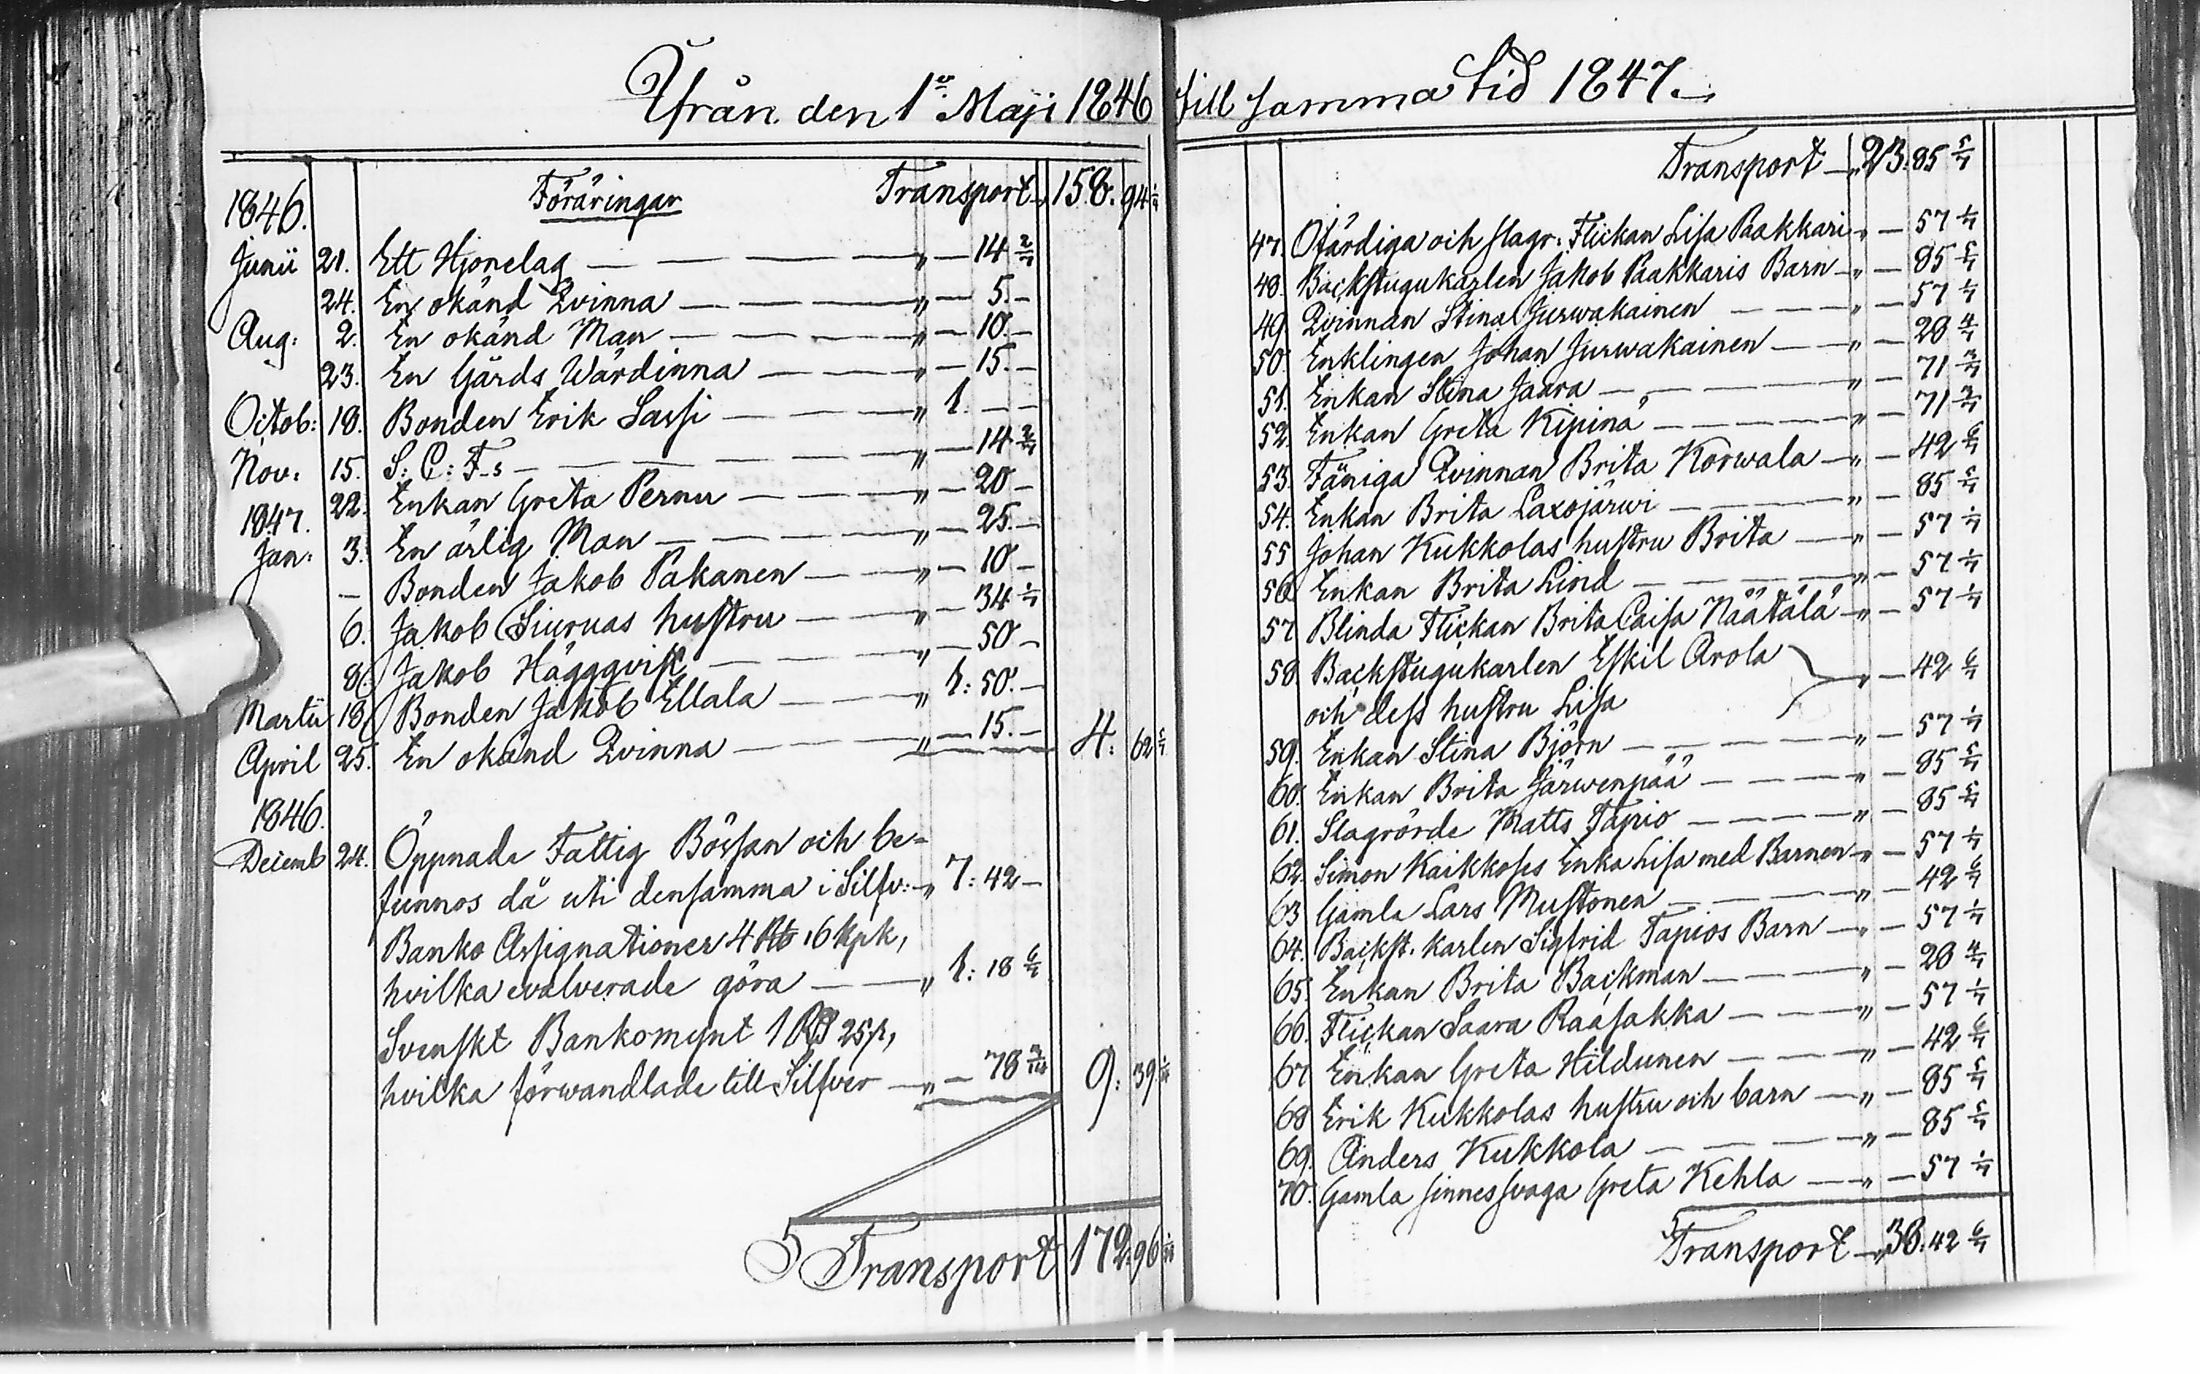 Ifrån den 1:a Maji 1846 till samma tid 1847.
1846. Föräringar Transport 158. 94 2/7
Junii 21. Ett Hjonelag — — — " — 14 2/7
24. En okänd Qvinna — — — " — 5. —
Aug: 2. En okänd Man — — — " — 10. —
23. En Gårds Wärdinna — — " — 15. —
Octob: 18. Bonden Erik Lassi — — " 1. — —
Nov: 15. S: C: F-s — — — " — 14 2/7
22. Enkan Greta Pernu — — " — 20 —
1847.
Jan: 3. En ärlig Man — — — " — 25. —
— Bonden Jakob Pakanen — — " — 10 —
6. Jakob Siuruas hustru — — " — 34 2/7
8. Jakob Häggqvist — — " — 50 —
Martii 18. Bonden Jakob Ellala — — " 1: 50. —
April 25. En okänd Qvinna — — — " — 15. — 4: 62 6/7
1846.
Decemb 24. Öppnade Fattig Bössan och be-
funnos då uti densamma i Silfv: — " 7: 42 —
Banko Assignationer 4 Rb 16 kpk,
hvilka evalverade göra — — " 1: 18 6/7
Svenskt Bankomynt 1 Rd 25 s,
hvilka förwandlade till Silfver — " — 78 3/14 9: 39 1/14
Transport 172. 96 3/14
Transport — " 23. 85 5/7
47. Ofärdiga och slagr: Flickan Lisa Paakkari " — 57 1/7
48. Backstugukarlen Jakob Paakkaris Barn — " — 85 5/7
49. Qvinnan Stina Jurwakainen — — " — 57 1/7
50. Enklingen Johan Jurwakainen — — " — 28 4/7
51. Enkan Stina Jaara — — — " — 71 3/7
52. Enkan Greta Kipinä — — — " — 71 3/7
53. Fåniga Qvinnan Brita Korwala — " — 42 6/7
54. Enkan Brita Laxojärwi — — " — 85 5/7
55 Johan Kukkolas hustru Brita — " — 57 1/7
56 Enkan Brita Lind — — — " — 57 1/7
57 Blinda Flickan Brita Caisa Näätälä — " — 57 1/7
58. Backstugukarlen Eskil Arola
och dess hustru Lisa " — 42 6/7
59. Enkan Stina Björn — — — " — 57 1/7
60. Enkan Brita Järwenpää — — " — 85 5/7
61. Slagrörde Matts Tapio — — " — 85 5/7
62. Simon Kaikkoses Enka Lisa med Barnen " — 57 1/7
63 Gamla Lars Mustonen — — " — 42 6/7
64. Backst. karlen Sigfrid Tapios Barn — " — 57 1/7
65. Enkan Brita Backman — — " — 28 4/7
66. Flickan Saara Raasakka — — " — 57 1/7
67 Enkan Greta Hildunen — — " — 42 6/7
68 Erik Kukkolas hustru och barn — " — 85 5/7
69. Anders Kukkola — — — " — 85 5/7
70. Gamla sinnessvaga Greta Kehla — " — 57 1/7
Transport — " 38. 42 6/7